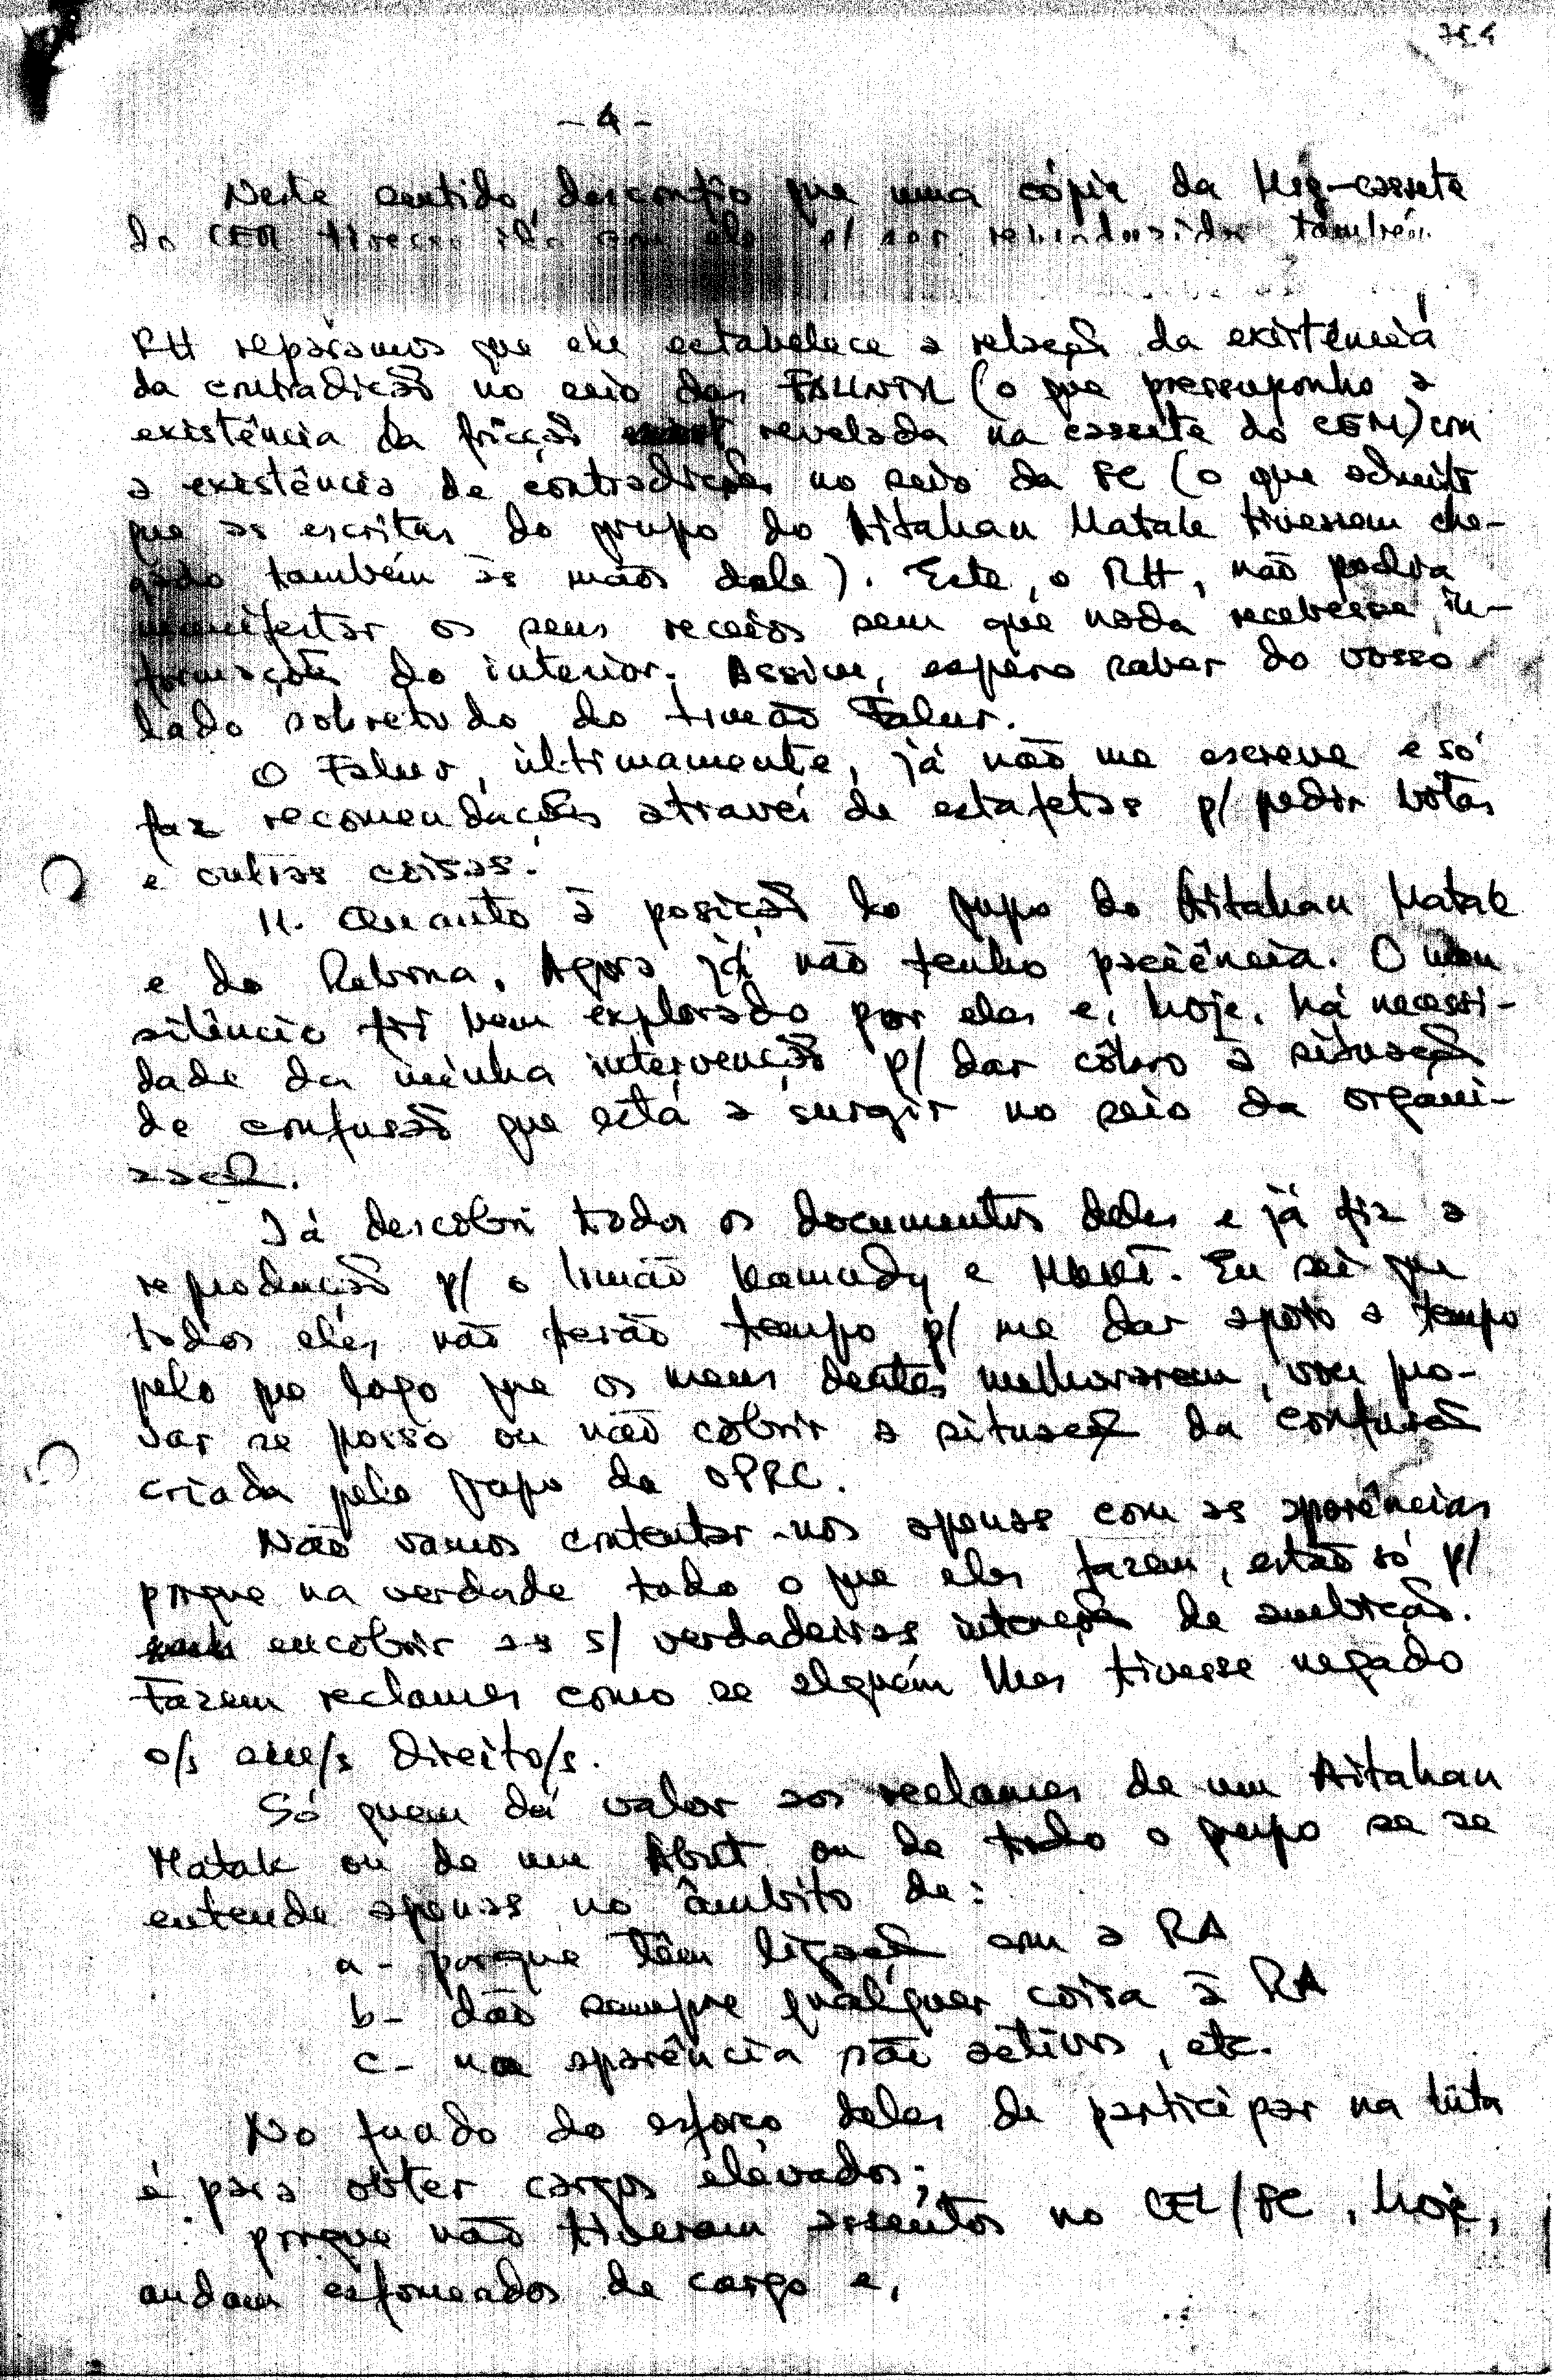 - 4 -
Neste sentido, desconfio que uma cópia da Msg-cassete
do CEM tivesse ido com ele p/ ser reproduzida também
RH reparamos que ele estabelece a relação da existência
da contradição no seio das FALINTIL (o que pressuponho a
existência da fricção revelada na cassete do CEM) com
a existência de contradições no seio da FC (o que admito
que as escritas do grupo do Aitahan Matak tivessem che-
gado também às mãos dele). Este, o RH, não podia
manifestar os seus receios sem que nada recebesse in-
formações do interior. Assim, espero saber do vosso
lado sobretudo do Irmão Falur.
O Falur, últimamente, já não me escreve e só
faz recomendações através de estafetas p/ pedir botas
e outras coisas.
11. Quanto à posição do grupo do Aitahan Matak
e do Rebona. Agora já não tenho paciência. O meu
silêncio foi bem explorado por eles e, hoje, há necessi-
dade da minha intervenção p/ dar côbro à situação
de confusão que está a surgir no seio da organi-
zação.
Já descobri todos os documentos deles e já fiz a
reprodução p/ o Irmão Kamudy e. Eu sei que
todos eles não terão tempo p/ me dar apoio a tempo
pelo que logo que os meus dentes melhorarem, vou pro-
var se posso ou não cobrir a situação da confusão
criada pelo grupo da OPRC.
Não vamos contentar-nos apenas com as aparências
porque na verdade tudo o que eles fazem, estão só p/
encobrir as s/ verdadeiras intenções de ambição.
Fazem reclames como se alguém lhes tivesse negado
o/s seu/s direito/s.
Só quem dá valor aos reclames de um Aitahan
Matak ou de um ou de todo o grupo se se
entende apenas no âmbito de:
a- porque têm ligação com a RA
b- dão sempre qualquer coisa à RA
c- na aparência são activos, etc.
No fundo do esforço deles de participar na luta
é para obter cargos elevados;
porque não tiveram assentos no CEL/FC, hoje,
andam esfomeados de cargo e,